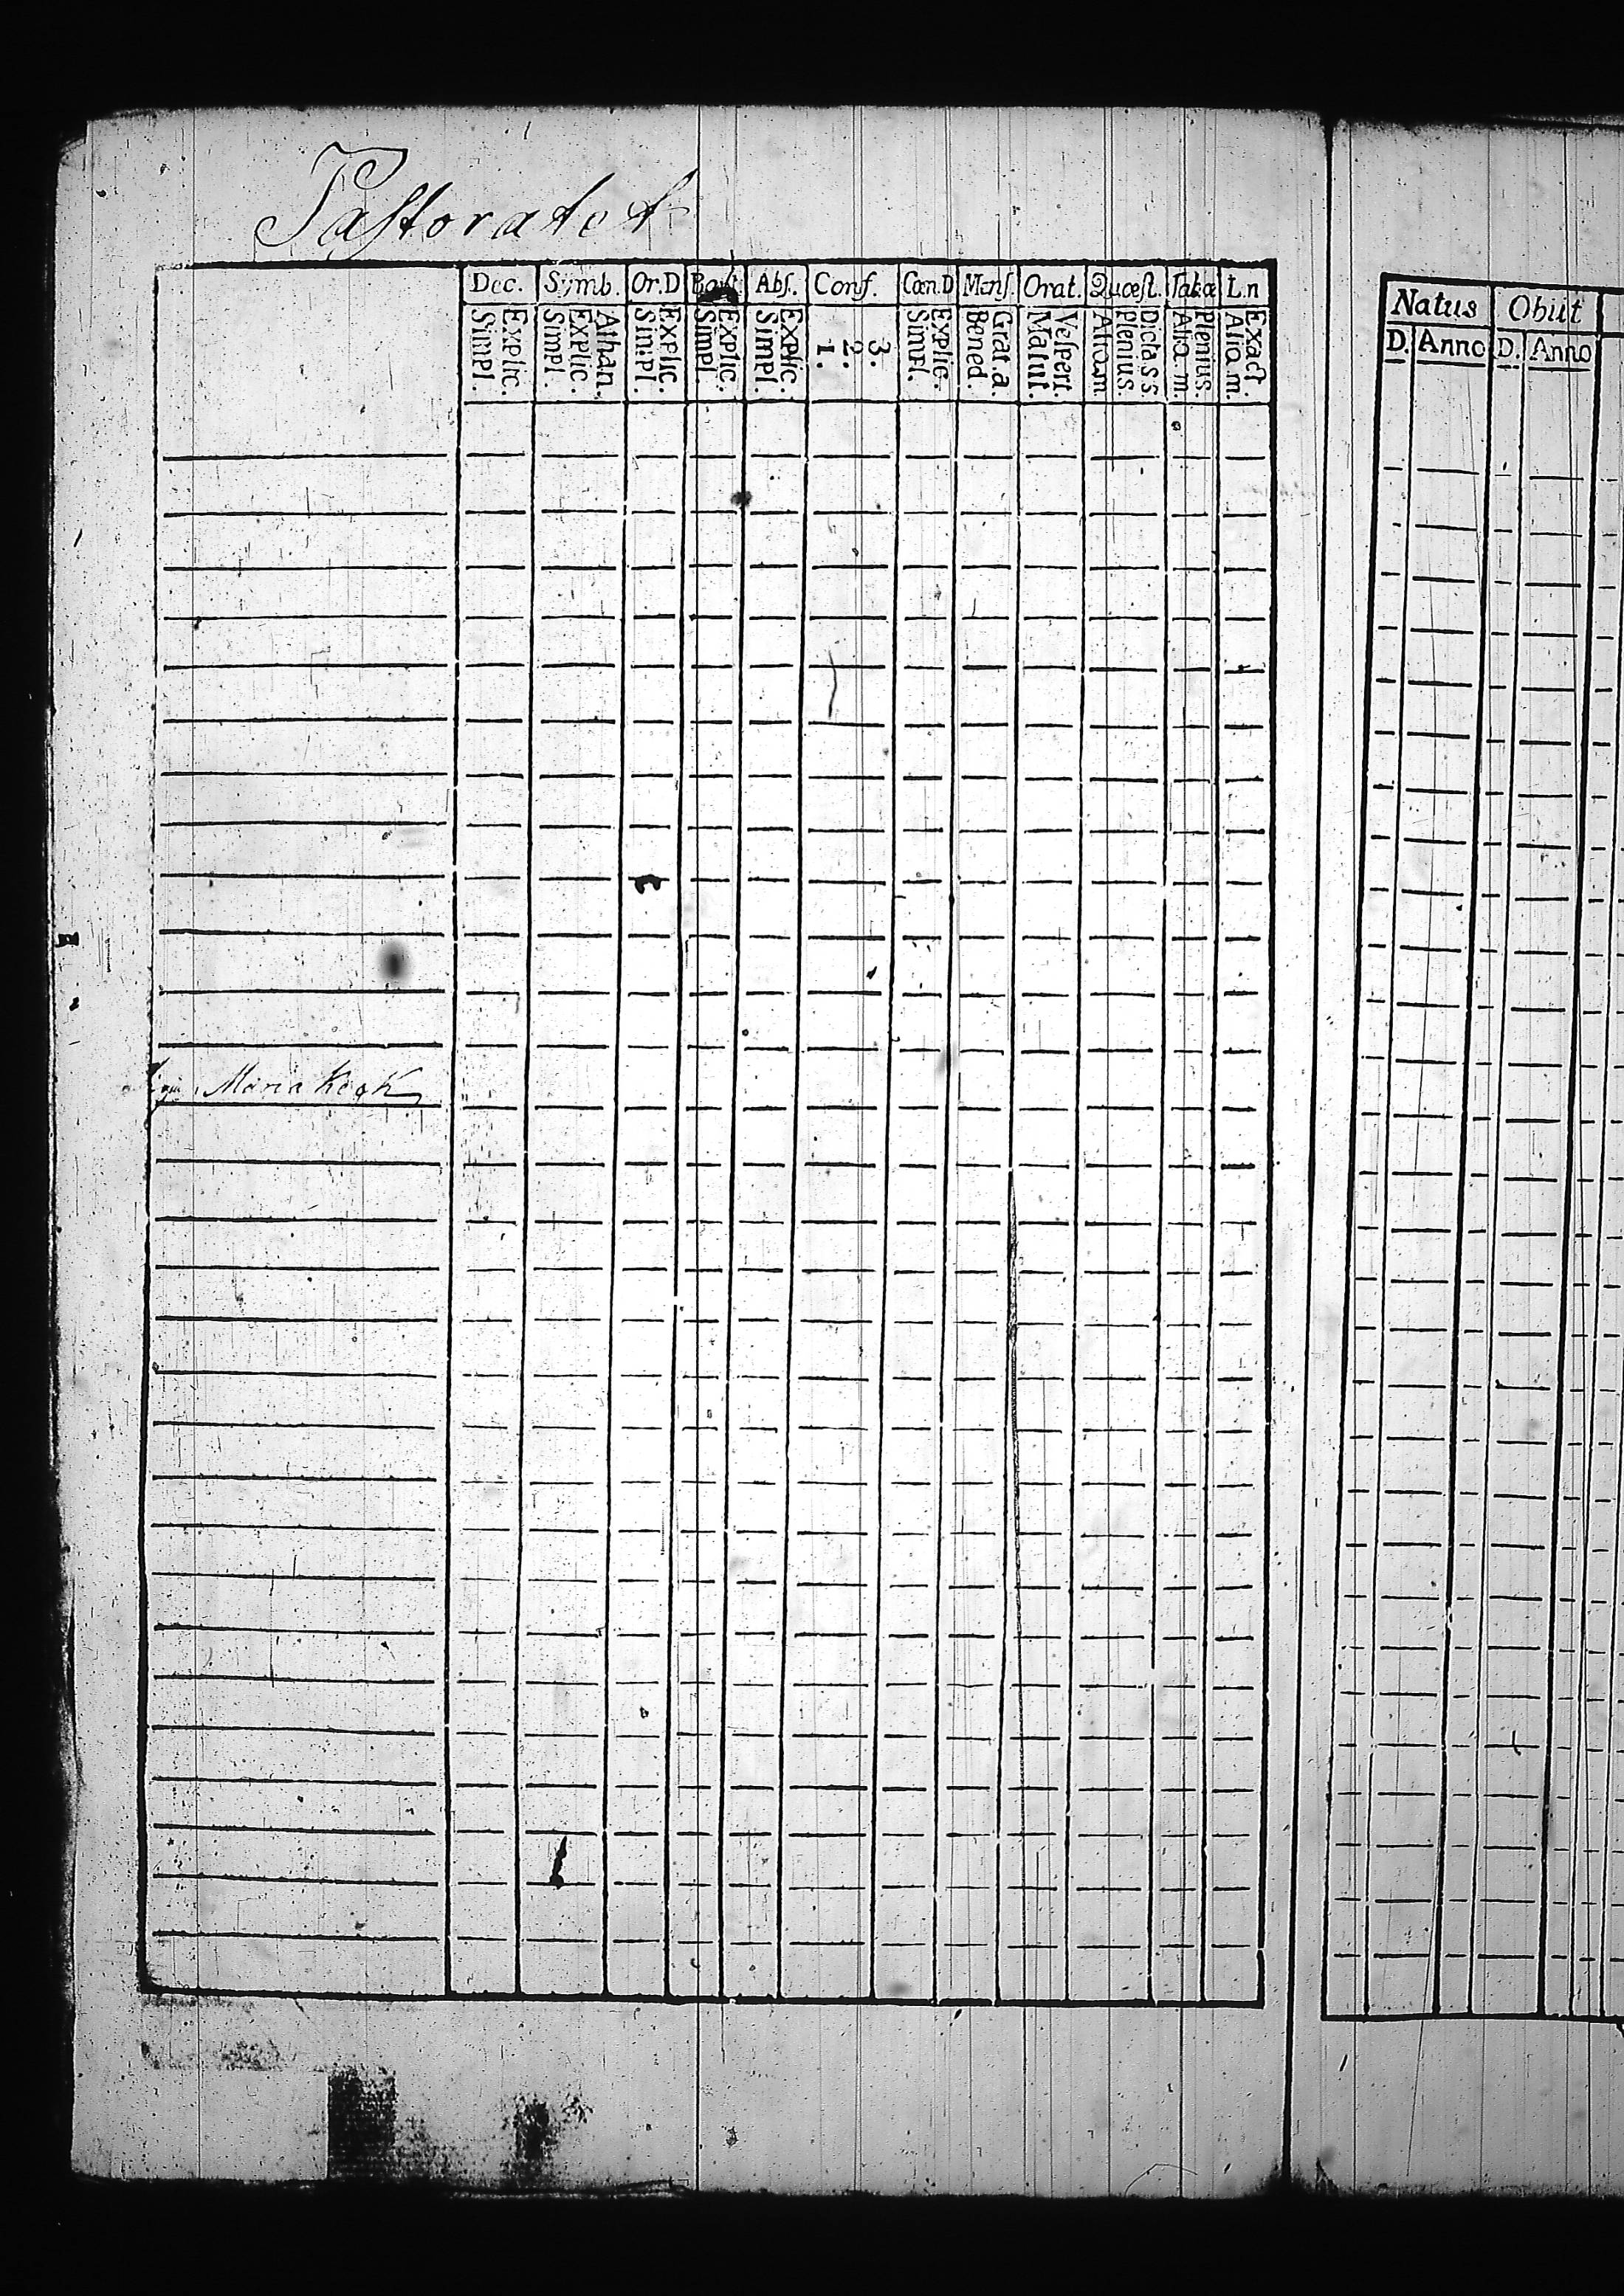 Pastoratet
Dec. Symb. Or.D Bapt. Abs. Conf. Cœn.D Mens. Orat. Quæst. Tab.œ L.n
Explic. Simpl. Athan. Explic. Simpl. Explic. Simpl. Explic. Simpl. Explic. Simpl. 3. 2. 1. Explic. Simpl. Grat.a. Bened. Vespert. Matut. Dicta s.s. Plenius. Plenius. Alia.m. Exact. Alia.m.
Maria
Natus Obiit
D. Anno D. Anno